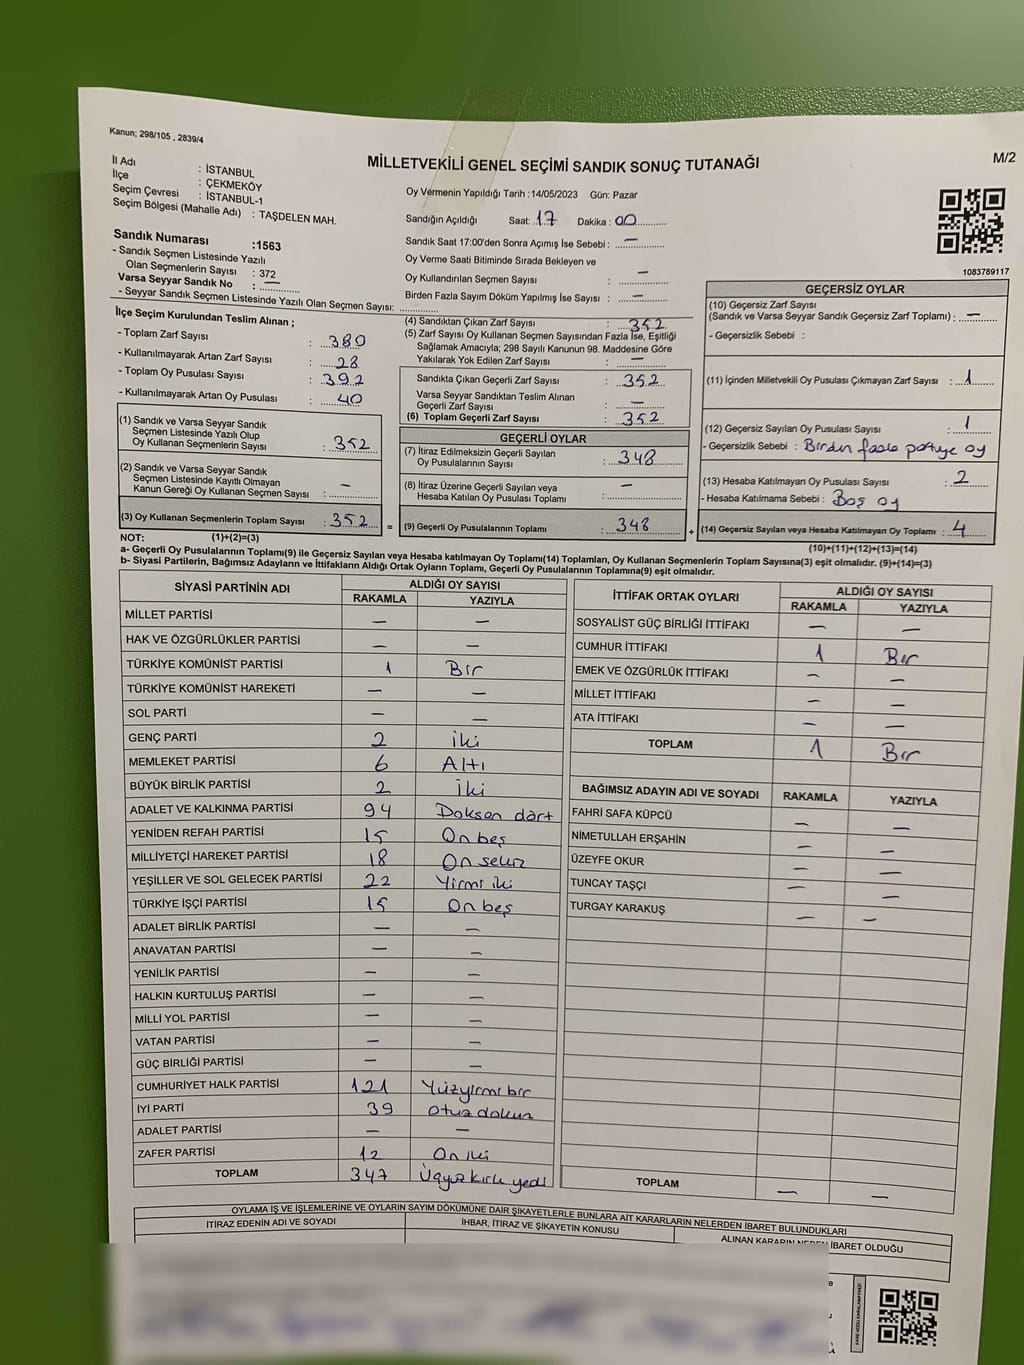 Kanun; 298/105 , 2839/4
M/2
MİLLETVEKİLİ GENEL SEÇİMİ SANDIK SONUÇ TUTANAĞI
İl Adı : İSTANBUL
İlçe : ÇEKMEKÖY
Seçim Çevresi : İSTANBUL-1
Seçim Bölgesi (Mahalle Adı) : TAŞDELEN MAH.
Sandık Numarası :1563
- Sandık Seçmen Listesinde Yazılı
Olan Seçmenlerin Sayısı : 372
Varsa Seyyar Sandık No : —
- Seyyar Sandık Seçmen Listesinde Yazılı Olan Seçmen Sayısı:
Oy Vermenin Yapıldığı Tarih :14/05/2023 Gün: Pazar
Sandığın Açıldığı Saat: 17 Dakika : 00
Sandık Saat 17:00'den Sonra Açımış İse Sebebi : —
Oy Verme Saati Bitiminde Sırada Bekleyen ve
Oy Kullandırılan Seçmen Sayısı : —
Birden Fazla Sayım Döküm Yapılmış İse Sayısı : —
1083789117
İlçe Seçim Kurulundan Teslim Alınan ;
- Toplam Zarf Sayısı : 380
- Kullanılmayarak Artan Zarf Sayısı : 28
- Toplam Oy Pusulası Sayısı : 392
- Kullanılmayarak Artan Oy Pusulası : 40
(1) Sandık ve Varsa Seyyar Sandık
Seçmen Listesinde Yazılı Olup
Oy Kullanan Seçmenlerin Sayısı : 352
(2) Sandık ve Varsa Seyyar Sandık
Seçmen Listesinde Kayıtlı Olmayan
Kanun Gereği Oy Kullanan Seçmen Sayısı : —
(3) Oy Kullanan Seçmenlerin Toplam Sayısı : 352 =
(4) Sandıktan Çıkan Zarf Sayısı : 352
(5) Zarf Sayısı Oy Kullanan Seçmen Sayısından Fazla İse, Eşitliği
Sağlamak Amacıyla; 298 Sayılı Kanunun 98. Maddesine Göre
Yakılarak Yok Edilen Zarf Sayısı : —
Sandıkta Çıkan Geçerli Zarf Sayısı : 352
Varsa Seyyar Sandıktan Teslim Alınan
Geçerli Zarf Sayısı : —
(6) Toplam Geçerli Zarf Sayısı : 352
GEÇERLİ OYLAR
(7) İtiraz Edilmeksizin Geçerli Sayılan
Oy Pusulalarının Sayısı : 348
(8) İtiraz Üzerine Geçerli Sayılan veya
Hesaba Katılan Oy Pusulası Toplamı : —
(9) Geçerli Oy Pusulalarının Toplamı : 348 +
GEÇERSİZ OYLAR
(10) Geçersiz Zarf Sayısı
(Sandık ve Varsa Seyyar Sandık Geçersiz Zarf Toplamı) : —
- Geçersizlik Sebebi :
(11) İçinden Milletvekili Oy Pusulası Çıkmayan Zarf Sayısı : 1
(12) Geçersiz Sayılan Oy Pusulası Sayısı : 1
- Geçersizlik Sebebi : Birden fazla partiye oy
(13) Hesaba Katılmayan Oy Pusulası Sayısı : 2
- Hesaba Katılmama Sebebi : Boş oy
(14) Geçersiz Sayılan veya Hesaba Katılmayan Oy Toplamı : 4
NOT: (1)+(2)=(3)
(10)+(11)+(12)+(13)=(14)
a- Geçerli Oy Pusulalarının Toplamı(9) ile Geçersiz Sayılan veya Hesaba katılmayan Oy Toplamı(14) Toplamları, Oy Kullanan Seçmenlerin Toplam Sayısına(3) eşit olmalıdır. (9)+(14)=(3)
b- Siyasi Partilerin, Bağımsız Adayların ve İttifakların Aldığı Ortak Oyların Toplamı, Geçerli Oy Pusulalarının Toplamına(9) eşit olmalıdır.
SİYASİ PARTİNİN ADI ALDIĞI OY SAYISI
RAKAMLA YAZIYLA
MİLLET PARTİSİ — —
HAK VE ÖZGÜRLÜKLER PARTİSİ — —
TÜRKİYE KOMÜNİST PARTİSİ 1 Bir
TÜRKİYE KOMÜNİST HAREKETİ — —
SOL PARTİ — —
GENÇ PARTİ 2 İki
MEMLEKET PARTİSİ 6 Altı
BÜYÜK BİRLİK PARTİSİ 2 İki
ADALET VE KALKINMA PARTİSİ 94 Doksan dört
YENİDEN REFAH PARTİSİ 15 On beş
MİLLİYETÇİ HAREKET PARTİSİ 18 On sekiz
YEŞİLLER VE SOL GELECEK PARTİSİ 22 Yirmi iki
TÜRKİYE İŞÇİ PARTİSİ 15 On beş
ADALET BİRLİK PARTİSİ — —
ANAVATAN PARTİSİ — —
YENİLİK PARTİSİ — —
HALKIN KURTULUŞ PARTİSİ — —
MİLLİ YOL PARTİSİ — —
VATAN PARTİSİ — —
GÜÇ BİRLİĞİ PARTİSİ — —
CUMHURİYET HALK PARTİSİ 121 Yüzyirmi bir
İYİ PARTİ 39 otuz dokuz
ADALET PARTİSİ — —
ZAFER PARTİSİ 12 On iki
TOPLAM 347 Üçyüz kırk yedi
İTTİFAK ORTAK OYLARI ALDIĞI OY SAYISI
RAKAMLA YAZIYLA
SOSYALİST GÜÇ BİRLİĞİ İTTİFAKI — —
CUMHUR İTTİFAKI 1 Bir
EMEK VE ÖZGÜRLÜK İTTİFAKI — —
MİLLET İTTİFAKI — —
ATA İTTİFAKI — —
TOPLAM 1 Bir
BAĞIMSIZ ADAYIN ADI VE SOYADI RAKAMLA YAZIYLA
FAHRİ SAFA KÜPCÜ — —
NİMETULLAH ERŞAHİN — —
ÜZEYFE OKUR — —
TUNCAY TAŞÇI — —
TURGAY KARAKUŞ — —
TOPLAM — —
OYLAMA İŞ VE İŞLEMLERİNE VE OYLARIN SAYIM DÖKÜMÜNE DAİR ŞİKAYETLERLE BUNLARA AİT KARARLARIN NELERDEN İBARET BULUNDUKLARI
İTİRAZ EDENİN ADI VE SOYADI İHBAR, İTİRAZ VE ŞİKAYETİN KONUSU ALINAN KARARIN NEDEN İBARET OLDUĞU